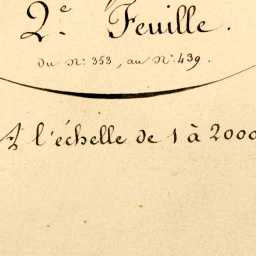 2.e Feuille.
du N.o 353, au N.o 439.
A l'échelle de 1 à 2000